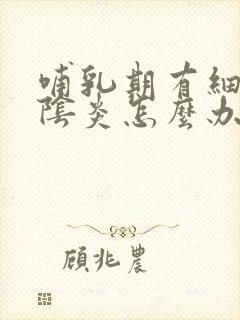 哺乳期有細
陰炎怎麼办
顧兆農